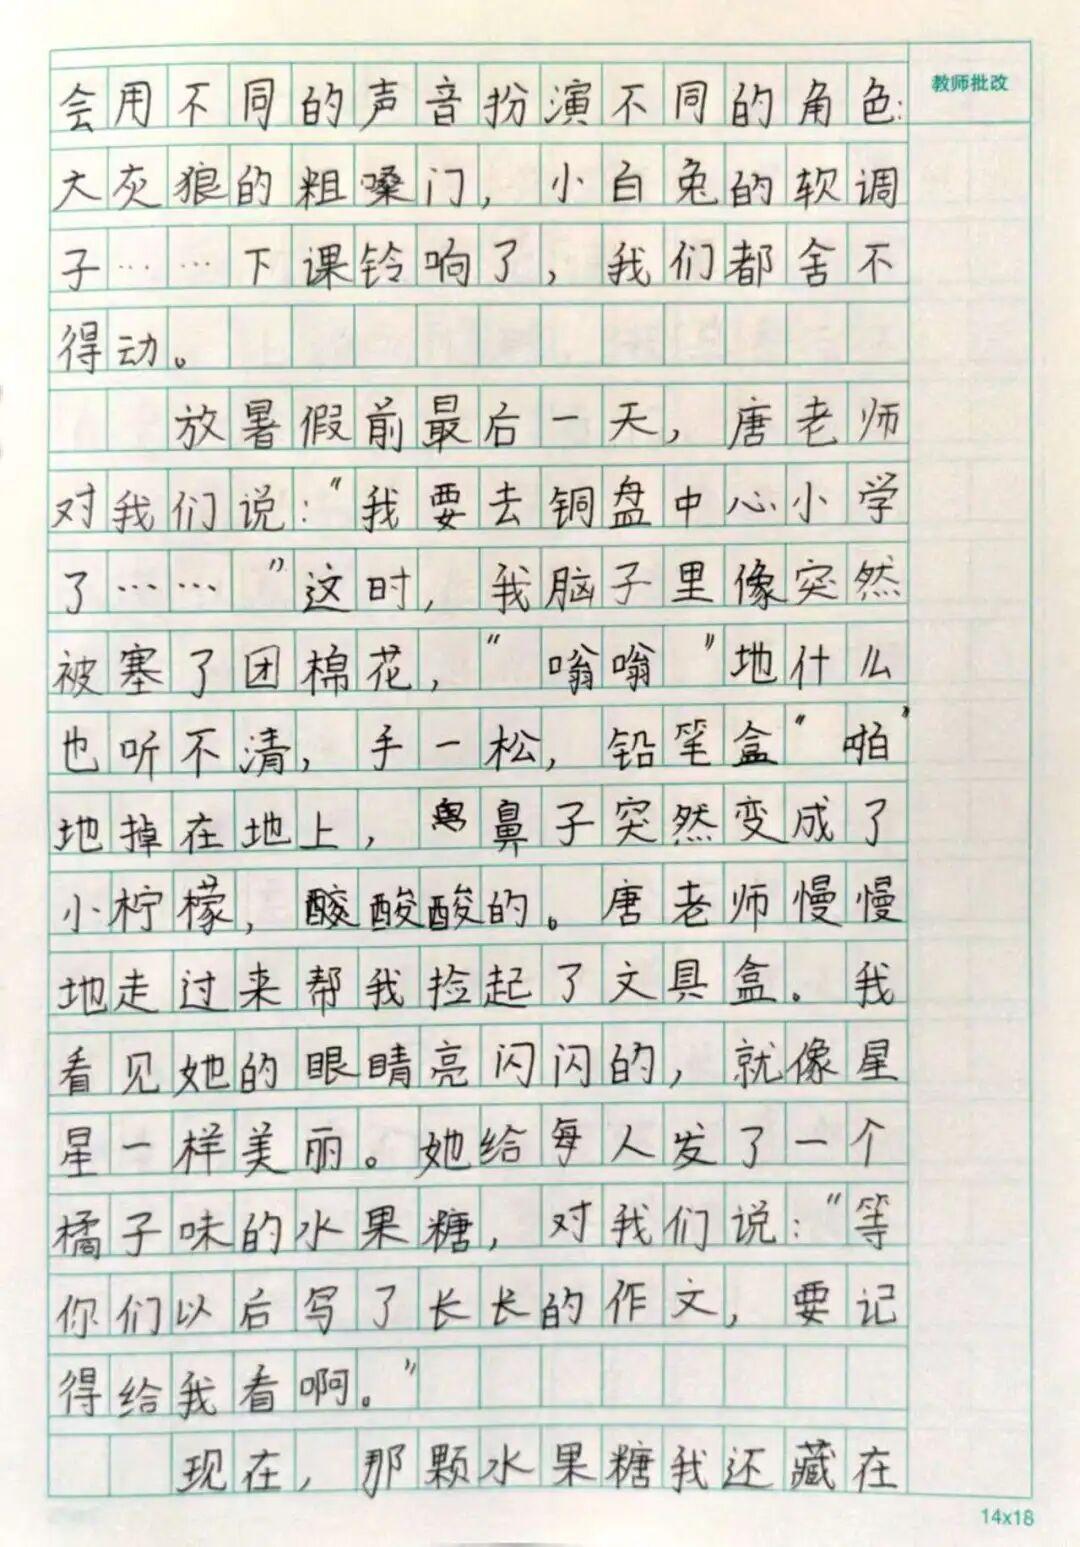 教师批改
会用不同的声音扮演不同的角色：
大灰狼的粗嗓门，小白兔的软调
子……下课铃响了，我们都舍不
得动。
放暑假前最后一天，唐老师
对我们说：“我要去铜盘中心小学
了……”这时，我脑子里像突然
被塞了团棉花，“嗡嗡”地什么
也听不清，手一松，铅笔盒“啪”
地掉在地上，鼻子突然变成了
小柠檬，酸酸酸的。唐老师慢慢
地走过来帮我捡起了文具盒。我
看见她的眼睛亮闪闪的，就像星
星一样美丽。她给每人发了一个
橘子味的水果糖，对我们说：“等
你们以后写了长长的作文，要记
得给我看啊。”
现在，那颗水果糖我还藏在
14x18